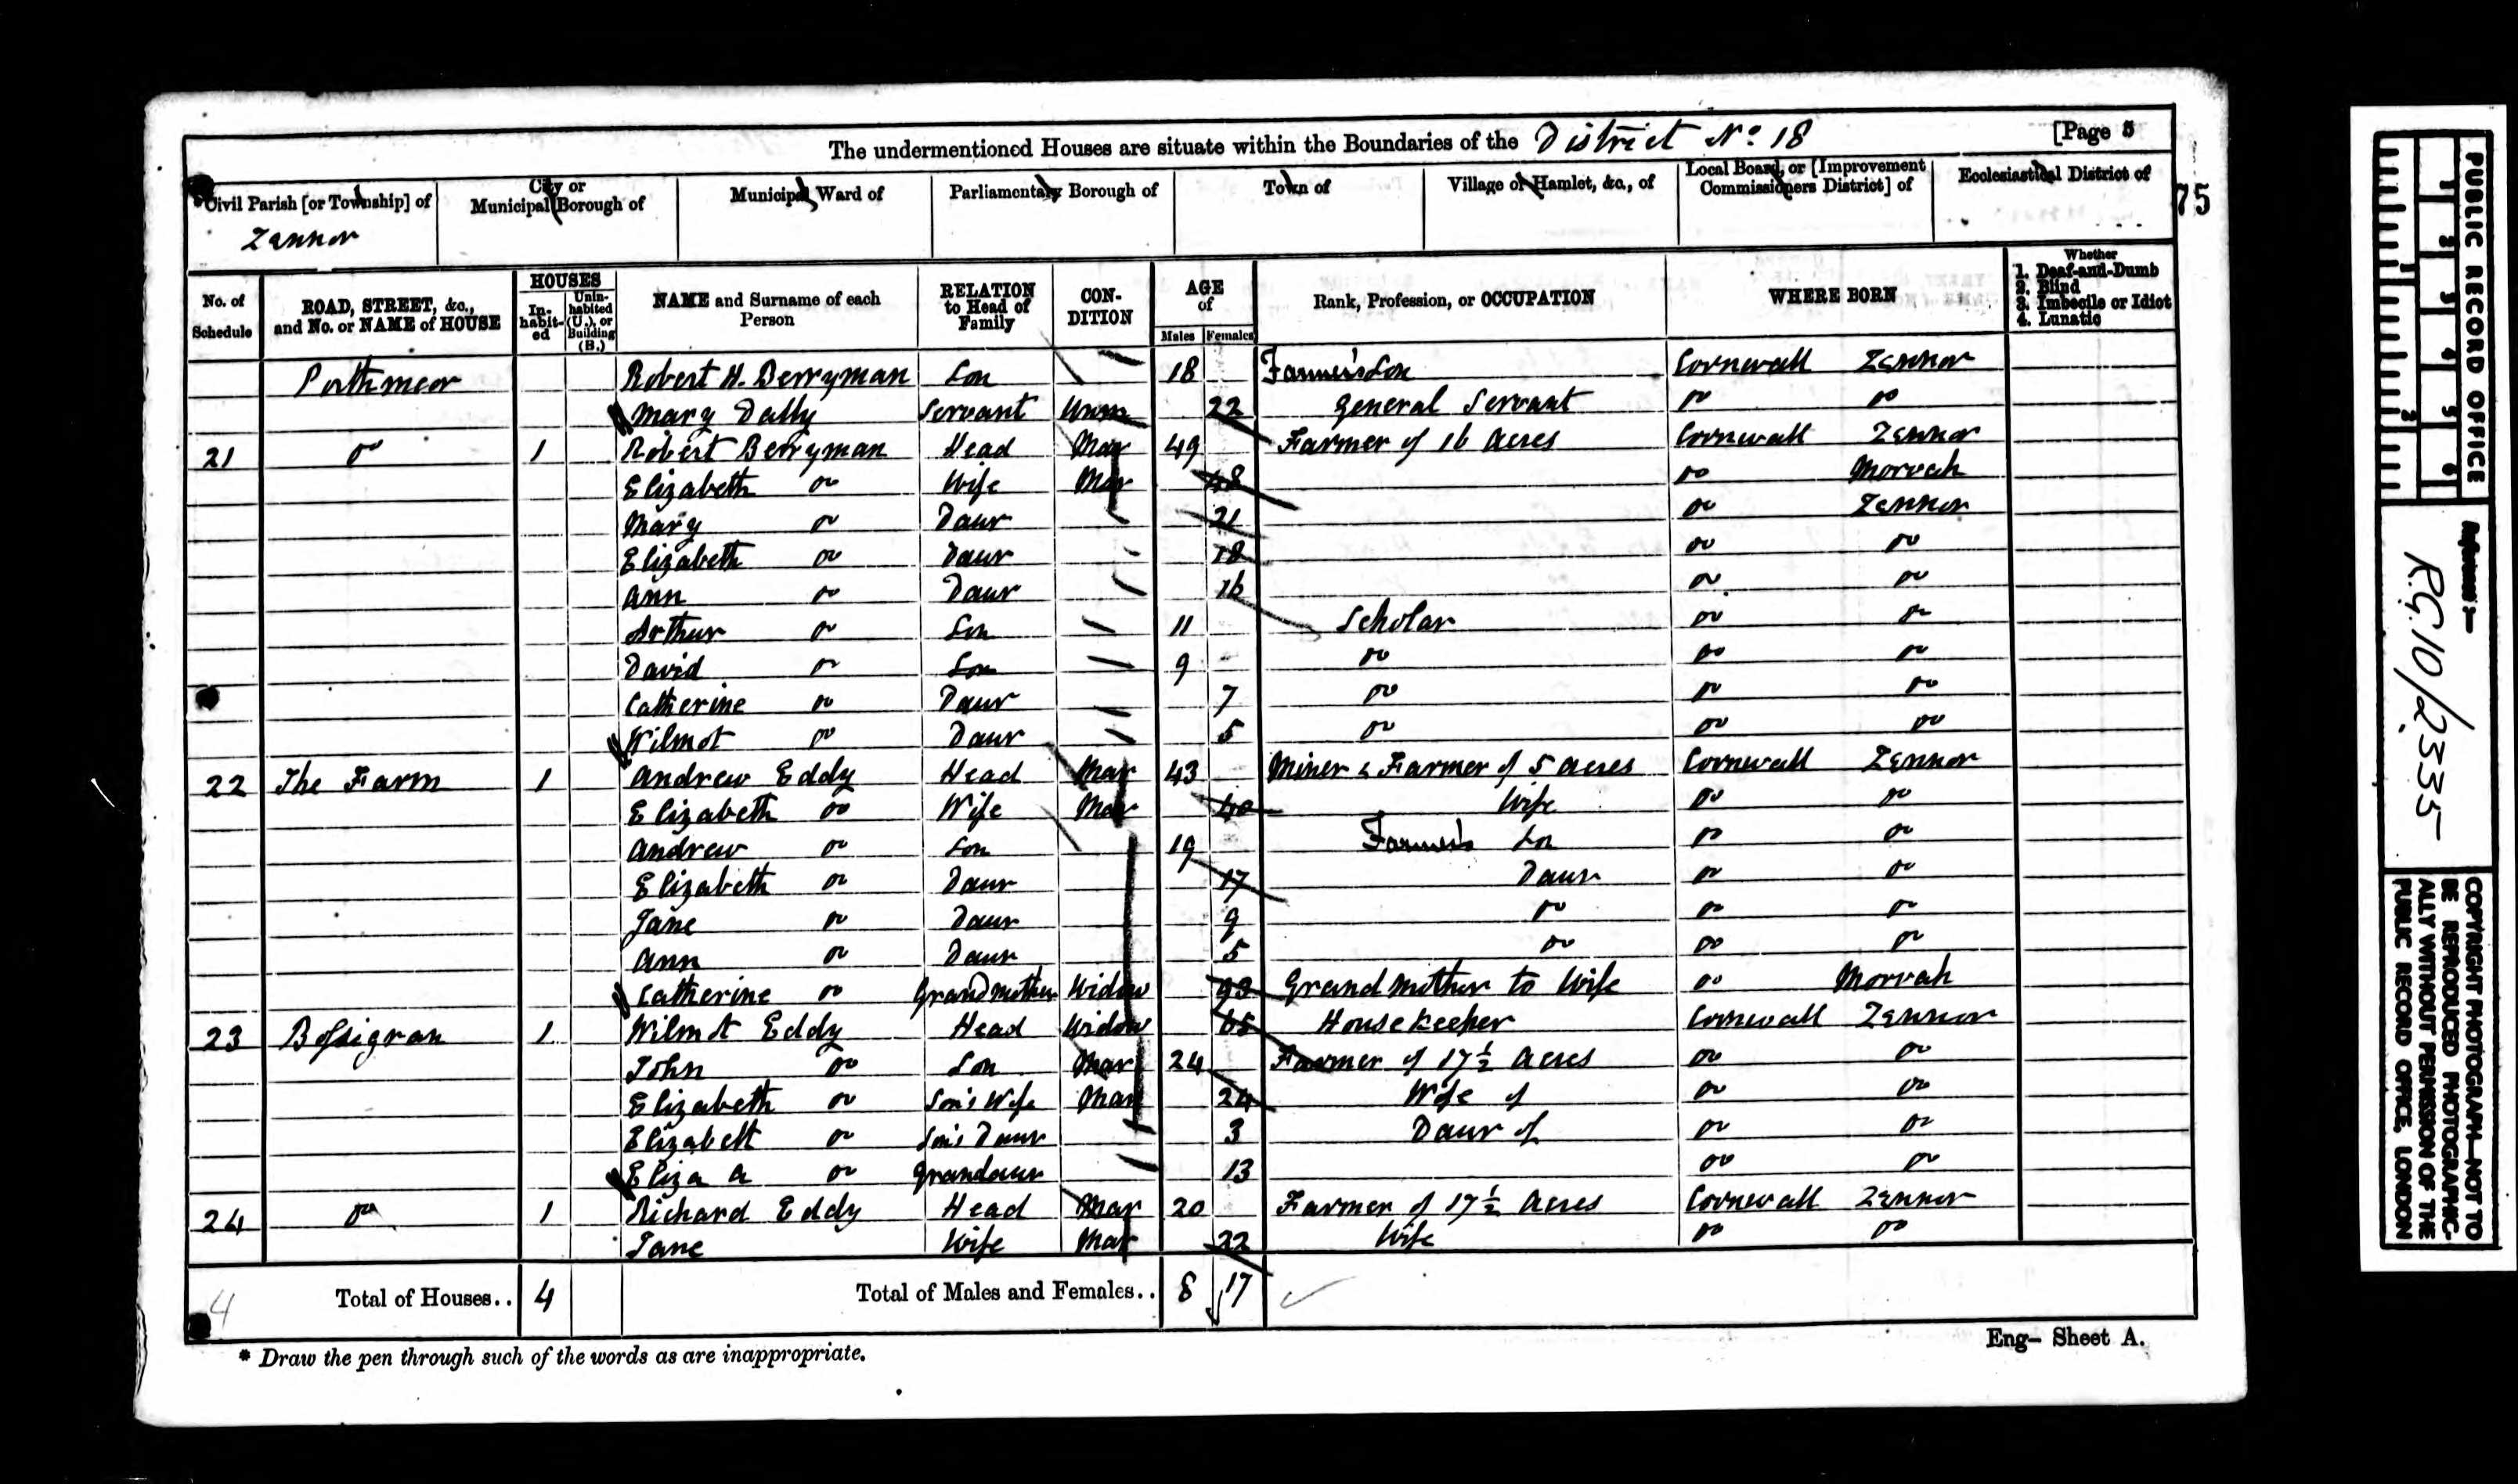 The undermentioned Houses are situate within the Boundaries of the District No. 18 [Page 5
75
Civil Parish [or Township] of City or Municipal Borough of Municipal Ward of Parliamentary Borough of Town of Village or Hamlet, &c., of Local Board, or [Improvement Commissioners District] of Ecclesiastical District of
Zennor
No. of Schedule ROAD, STREET, &c., and No. or NAME of HOUSE HOUSES Inhabited Uninhabited (U.), or Building (B.) NAME and Surname of each Person RELATION to Head of Family CONDITION AGE of Males Females Rank, Profession, or OCCUPATION WHERE BORN Whether 1. Deaf-and-Dumb 2. Blind 3. Imbecile or Idiot 4. Lunatic
Porthmeor Robert H. Berryman Son 18 Farmer's Son Cornwall Zennor
Mary Dally Servant Unm 22 General Servant Do Do
21 Do 1 Robert Berryman Head Mar 49 Farmer of 16 Acres Cornwall Zennor
Elizabeth Do Wife Mar 48 Do Morvah
Mary Do Daur 21 Do Zennor
Elizabeth Do Daur 18 Do Do
Ann Do Daur 16 Do Do
Arthur Do Son 11 Scholar Do Do
David Do Son 9 Do Do Do
Catherine Do Daur 7 Do Do Do
Wilmot Do Daur 5 Do Do Do
22 The Farm 1 Andrew Eddy Head Mar 43 Miner & Farmer of 5 Acres Cornwall Zennor
Elizabeth Do Wife Mar 40 Wife Do Do
Andrew Do Son 19 Farmer's Son Do Do
Elizabeth Do Daur 17 Daur Do Do
Jane Do Daur 9 Do Do Do
Ann Do Daur 5 Do Do Do
Catherine Do Grandmother Widow 93 Grandmother to Wife Do Morvah
23 Bossigran 1 Wilmot Eddy Head Widow 65 Housekeeper Cornwall Zennor
John Do Son Mar 24 Farmer of 17½ Acres Do Do
Elizabeth Do Son's Wife Mar 24 Wife of Do Do
Elizabeth Do Son's Daur 3 Daur of Do Do
Eliza A Do Grandaur 13 Do Do
24 Do 1 Richard Eddy Head Mar 20 Farmer of 17½ Acres Cornwall Zennor
Jane Wife Mar 22 Wife Do Do
4 Total of Houses.. 4 Total of Males and Females.. 8 17
* Draw the pen through such of the words as are inappropriate.
Eng— Sheet A.
PUBLIC RECORD OFFICE
1 2 3 4 5 6
1 2
Reference :—
R.G. 10/2335
COPYRIGHT PHOTOGRAPH—NOT TO
BE REPRODUCED PHOTOGRAPHIC-
ALLY WITHOUT PERMISSION OF THE
PUBLIC RECORD OFFICE, LONDON